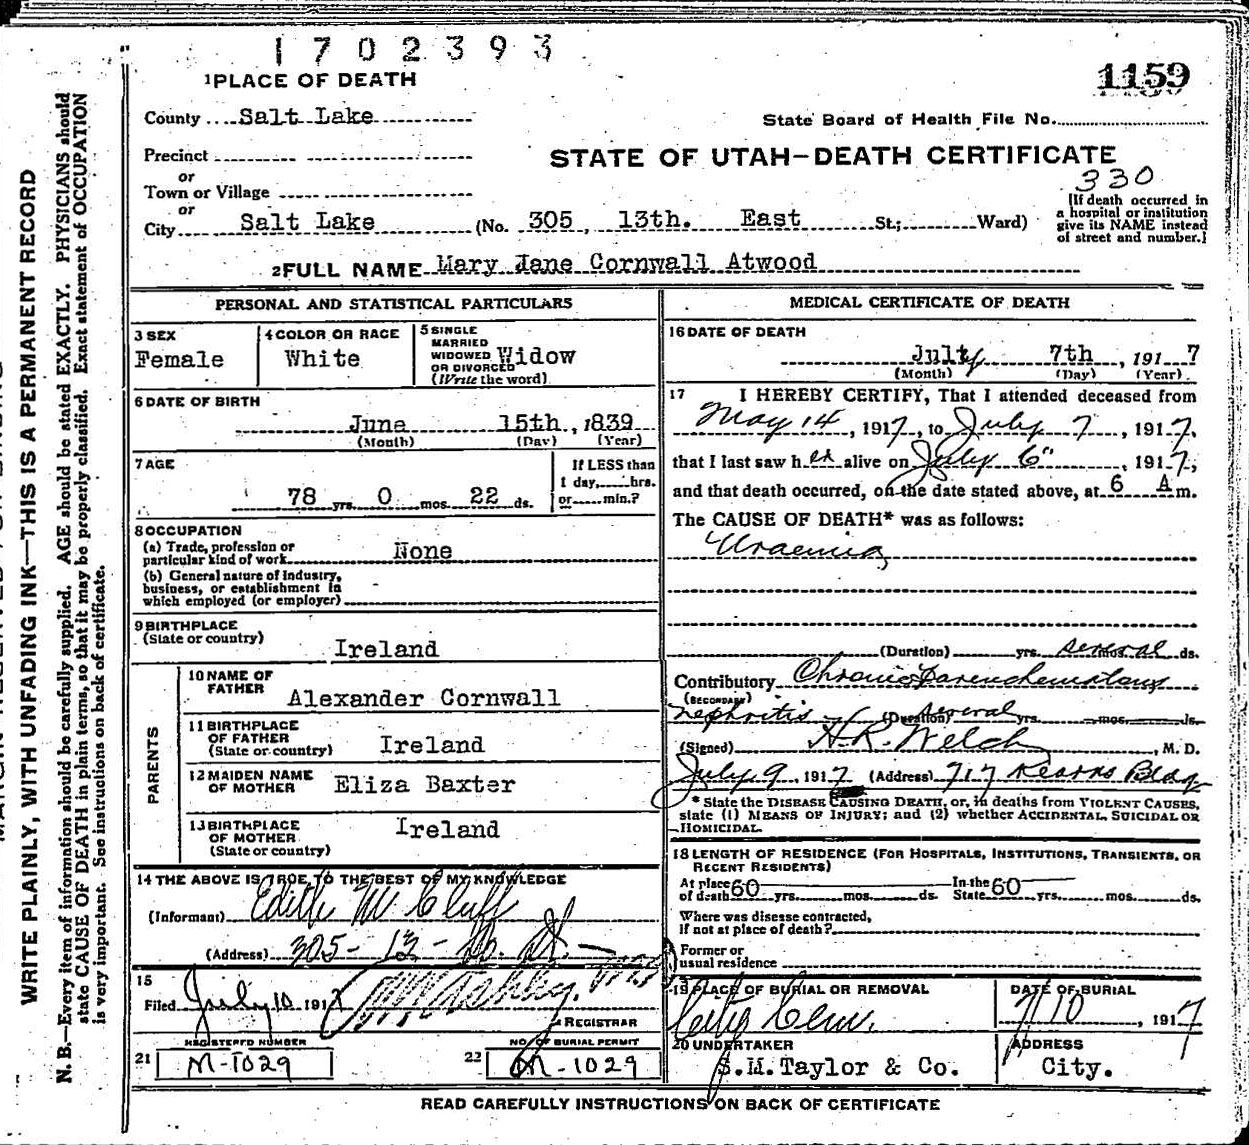 1702393
1159
1 PLACE OF DEATH
County Salt Lake
State Board of Health File No.
Precinct
or
STATE OF UTAH—DEATH CERTIFICATE
330
Town or Village
or
City Salt Lake (No. 305, 13th. East St; Ward)
[If death occurred in
a hospital or institution
give its NAME instead
of street and number.]
2 FULL NAME Mary Jane Cornwall Atwood
PERSONAL AND STATISTICAL PARTICULARS
3 SEX
Female
4 COLOR OR RACE
White
5 SINGLE
MARRIED
WIDOWED
OR DIVORCED
(Write the word)
Widow
6 DATE OF BIRTH
June 15th, 1839
(Month) (Day) (Year)
7 AGE
78 yrs. 0 mos. 22 ds.
If LESS than
1 day, hrs.
or min.?
8 OCCUPATION
(a) Trade, profession or
particular kind of work None
(b) General nature of industry,
business, or establishment in
which employed (or employer)
9 BIRTHPLACE
(State or country)
Ireland
PARENTS
10 NAME OF
FATHER
Alexander Cornwall
11 BIRTHPLACE
OF FATHER
(State or country)
Ireland
12 MAIDEN NAME
OF MOTHER
Eliza Baxter
13 BIRTHPLACE
OF MOTHER
(State or country)
Ireland
14 THE ABOVE IS TRUE TO THE BEST OF MY KNOWLEDGE
(Informant) Edith M Cluff
(Address) 305-13-
15
Filed July 10 1917
REGISTRAR
REGISTERED NUMBER
21 M-1029
NO. OF BURIAL PERMIT
22 M-1029
MEDICAL CERTIFICATE OF DEATH
16 DATE OF DEATH
July 7th, 1917
(Month) (Day) (Year)
17 I HEREBY CERTIFY, That I attended deceased from
May 14, 1917, to July 7, 1917,
that I last saw her alive on July 6", 1917,
and that death occurred, on the date stated above, at 6 A m.
The CAUSE OF DEATH* was as follows:
Uraemia
(Duration) yrs. several ds.
Contributory Chronic Parenchematous
(SECONDARY)
nephritis (Duration) several yrs. mos. ds.
(Signed) H.R. Welch, M. D.
July 9, 1917 (Address) 717 Kearns Bldg
* State the DISEASE CAUSING DEATH, or, in deaths from VIOLENT CAUSES,
state (1) MEANS OF INJURY; and (2) whether ACCIDENTAL, SUICIDAL OR
HOMICIDAL.
18 LENGTH OF RESIDENCE (FOR HOSPITALS, INSTITUTIONS, TRANSIENTS, OR
RECENT RESIDENTS)
At place
of death 60 yrs. mos. ds.
In the
State 60 yrs. mos. ds.
Where was disease contracted,
if not at place of death?
Former or
usual residence
19 PLACE OF BURIAL OR REMOVAL
City Cem.
DATE OF BURIAL
7/10, 1917
20 UNDERTAKER
S.M. Taylor & Co.
ADDRESS
City.
READ CAREFULLY INSTRUCTIONS ON BACK OF CERTIFICATE
WRITE PLAINLY, WITH UNFADING INK—THIS IS A PERMANENT RECORD
N. B.—Every item of information should be carefully supplied. AGE should be stated EXACTLY. PHYSICIANS should
state CAUSE OF DEATH in plain terms, so that it may be properly classified. Exact statement of OCCUPATION
is very important. See instructions on back of certificate.